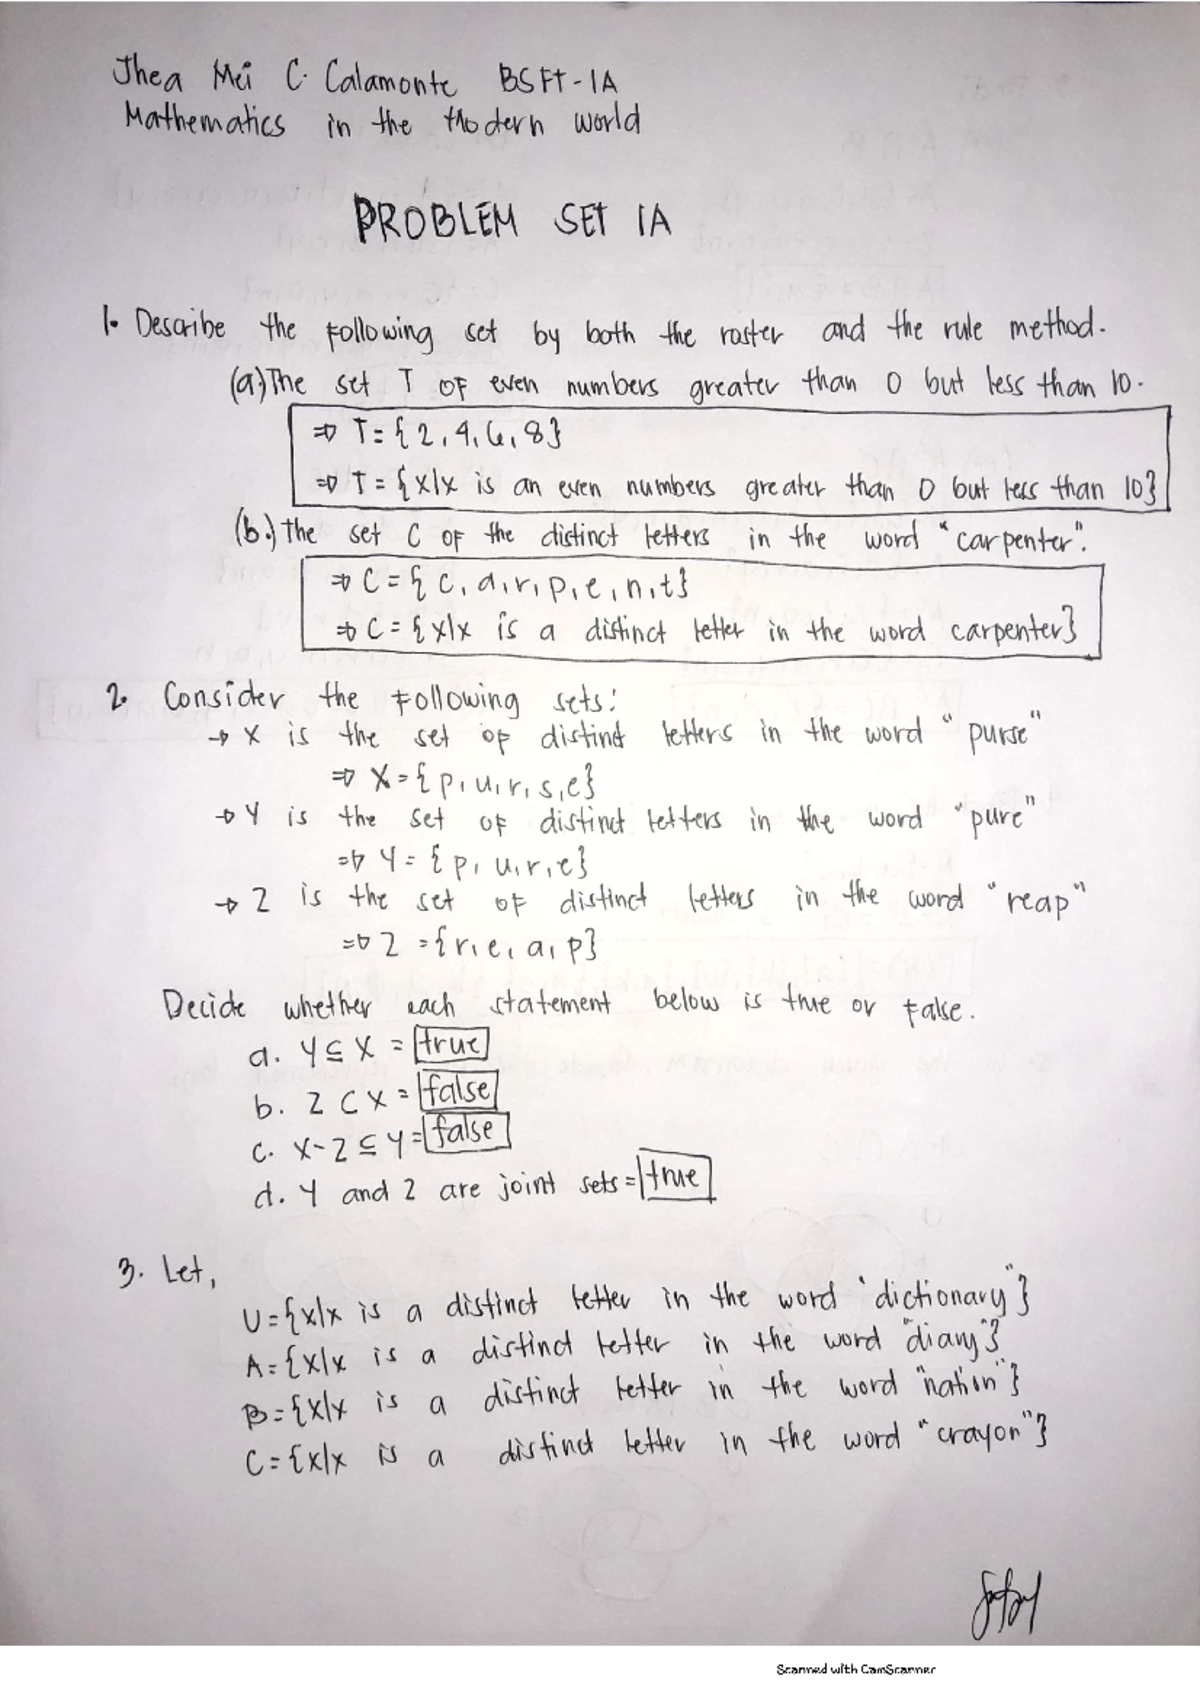 Jhea Mei C. Calamonte BSFT-1A
Mathematics in the Modern world
PROBLEM SET 1A
1. Describe the following set by both the roster and the rule method.
(a) The set T of even numbers greater than 0 but less than 10.
⇒ T = {2, 4, 6, 8}
⇒ T = {x|x is an even numbers greater than 0 but less than 10}
(b.) The set C of the distinct letters in the word "carpenter".
⇒ C = {c, a, r, p, e, n, t}
⇒ C = {x|x is a distinct letter in the word carpenter}
2. Consider the following sets:
→ X is the set of distinct letters in the word "purse"
⇒ X = {p, u, r, s, e}
→ Y is the set of distinct letters in the word "pure"
⇒ Y = {p, u, r, e}
→ Z is the set of distinct letters in the word "reap"
⇒ Z = {r, e, a, p}
Decide whether each statement below is true or false.
a. Y ⊆ X = true
b. Z ⊂ X = false
c. X - Z ⊆ Y = false
d. Y and Z are joint sets = true
3. Let,
U = {x|x is a distinct letter in the word "dictionary"}
A = {x|x is a distinct letter in the word "diary"}
B = {x|x is a distinct letter in the word "nation"}
C = {x|x is a distinct letter in the word "crayon"}
Scanned with CamScanner